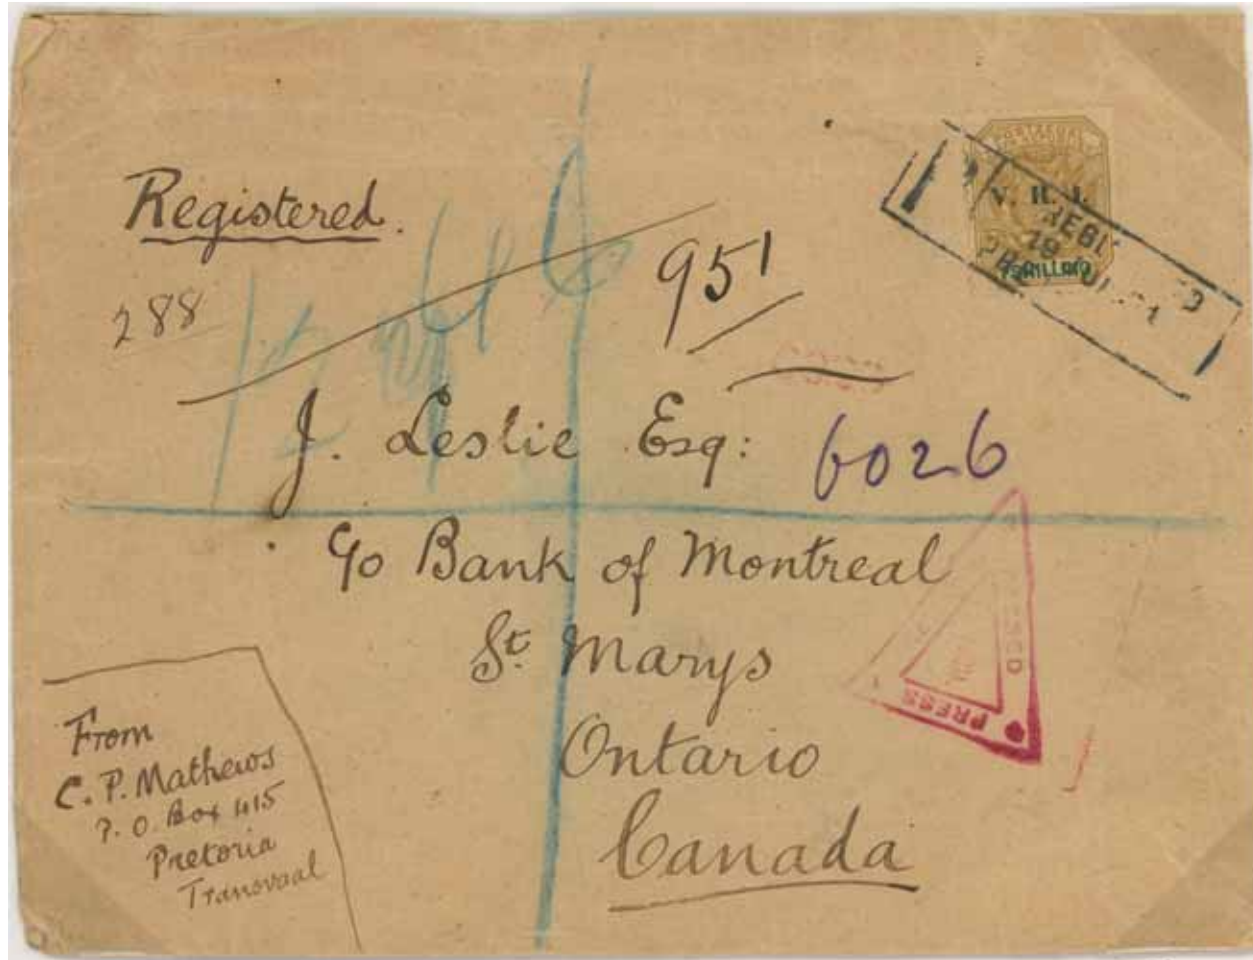 Registered.
288
951
V. R. I.
J. Leslie Esq:
6026
c/o Bank of Montreal
St. Marys
Ontario
Canada
PRESS
From
C. P. Mathews
P. O. Box 415
Pretoria
Transvaal